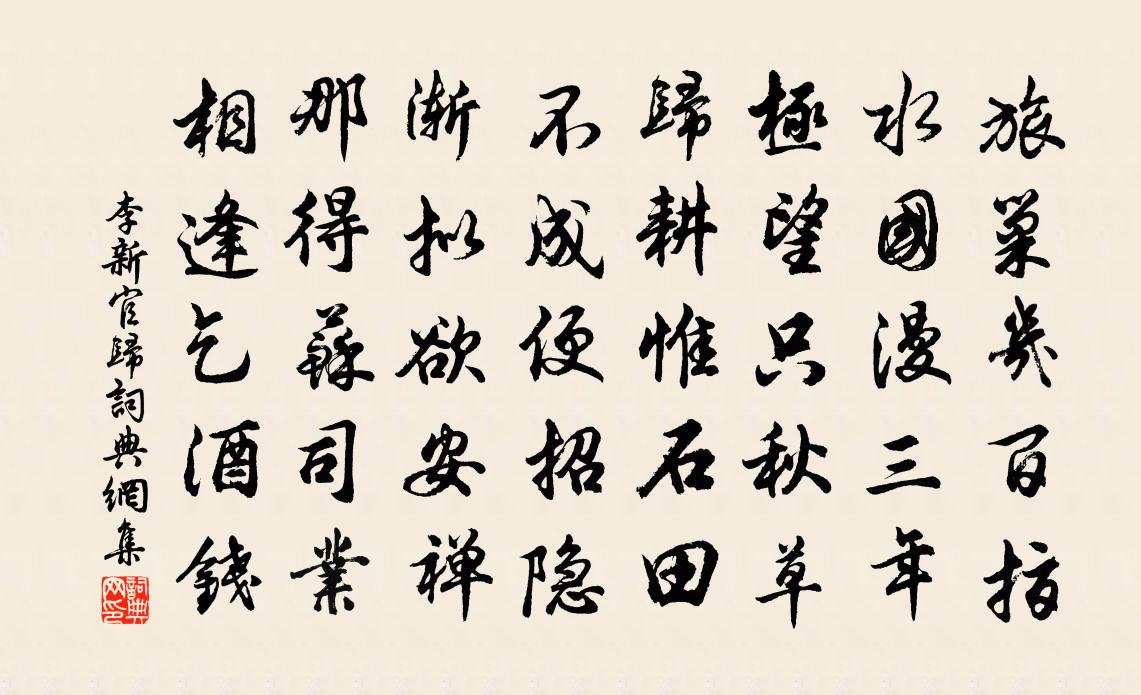 旅巢幾百指
水國漫三年
極望只秋草
歸耕惟石田
不成便招隐
渐拟欲安禅
那得蘇司業
相逢乞酒錢
李新官歸詞典網集
詞典网印